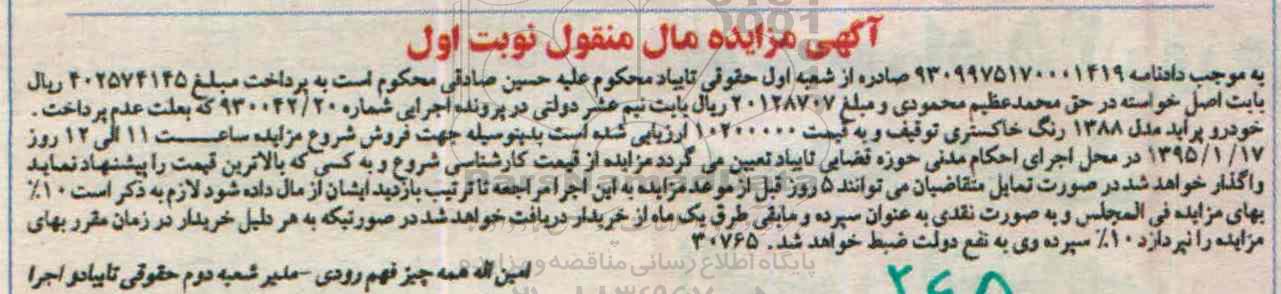 آگهی مزایده مال منقول نوبت اول
به موجب دادنامه ۹۳۰۹۹۷۵۱۷۰۰۰۱۴۱۹ صادره از شعبه اول حقوقی تایباد محکوم علیه حسین صادقی محکوم است به پرداخت مبلغ ۴۰۲۵۷۴۱۴۵ ریال
بابت اصل خواسته در حق محمدعظیم محمودی و مبلغ ۲۰۱۲۸۷۰۷ ریال بابت نیم عشر دولتی در پرونده اجرایی شماره ۹۳۰۰۴۲/۲۰ که بعلت عدم پرداخت .
خودرو پراید مدل ۱۳۸۸ رنگ خاکستری توقیف و به قیمت ۱۰۲۰۰۰۰۰۰ ارزیابی شده است بدینوسیله جهت فروش شروع مزایده ساعت ۱۱ الی ۱۲ روز
۱۳۹۵/۱/۱۷ در محل اجرای احکام مدنی حوزه قضایی تایباد تعیین می گردد مزایده از قیمت کارشناسی شروع و به کسی که بالاترین قیمت را پیشنهاد نماید
واگذار خواهد شد در صورت تمایل متقاضیان می توانند ۵ روز قبل از موعد مزایده به این اجرا مراجعه تا ترتیب بازدید ایشان از مال داده شود لازم به ذکر است ۱۰٪
بهای مزایده فی المجلس و به صورت نقدی به عنوان سپرده و مابقی ظرف یک ماه از خریدار دریافت خواهد شد در صورتیکه به هر دلیل خریدار در زمان مقرر بهای
مزایده را نپردازد ۱۰٪ سپرده وی به نفع دولت ضبط خواهد شد. ۳۰۷۶۵
امین اله همه چیز فهم رودی -مدیر شعبه دوم حقوقی تایباد و اجرا
پایگاه اطلاع رسانی مناقصه و مزایده
۲۶۵